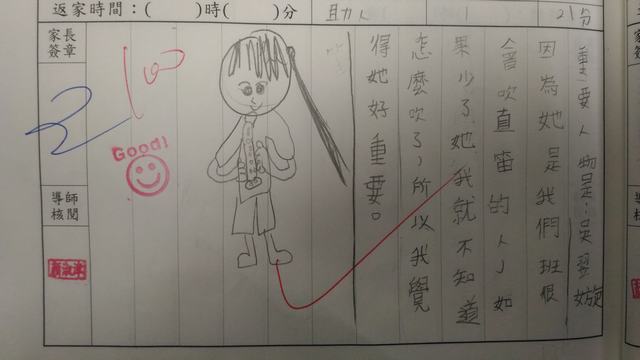 返家時間：(　　)時(　　)分
助人
1
21分
家長
簽章
導師
核閱
重要人物是：吳翌嫙
因為她是我們班很
會吹直笛的人，如
果少了她，我就不知道
怎麼吹了，所以我覺
得她好重要。
100
Good!